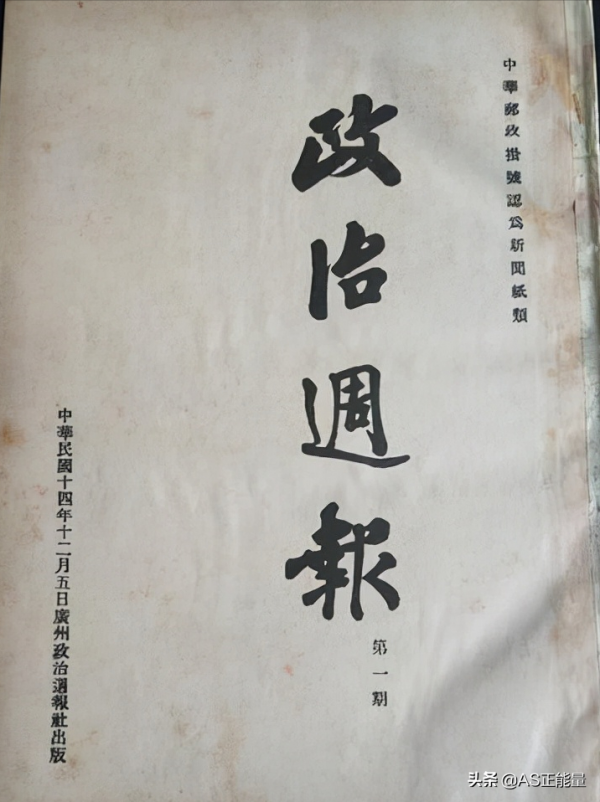 中華郵政掛號認為新聞紙類
政治週報
第一期
中華民國十四年十二月五日廣州政治週報社出版
头条 @AS正能量